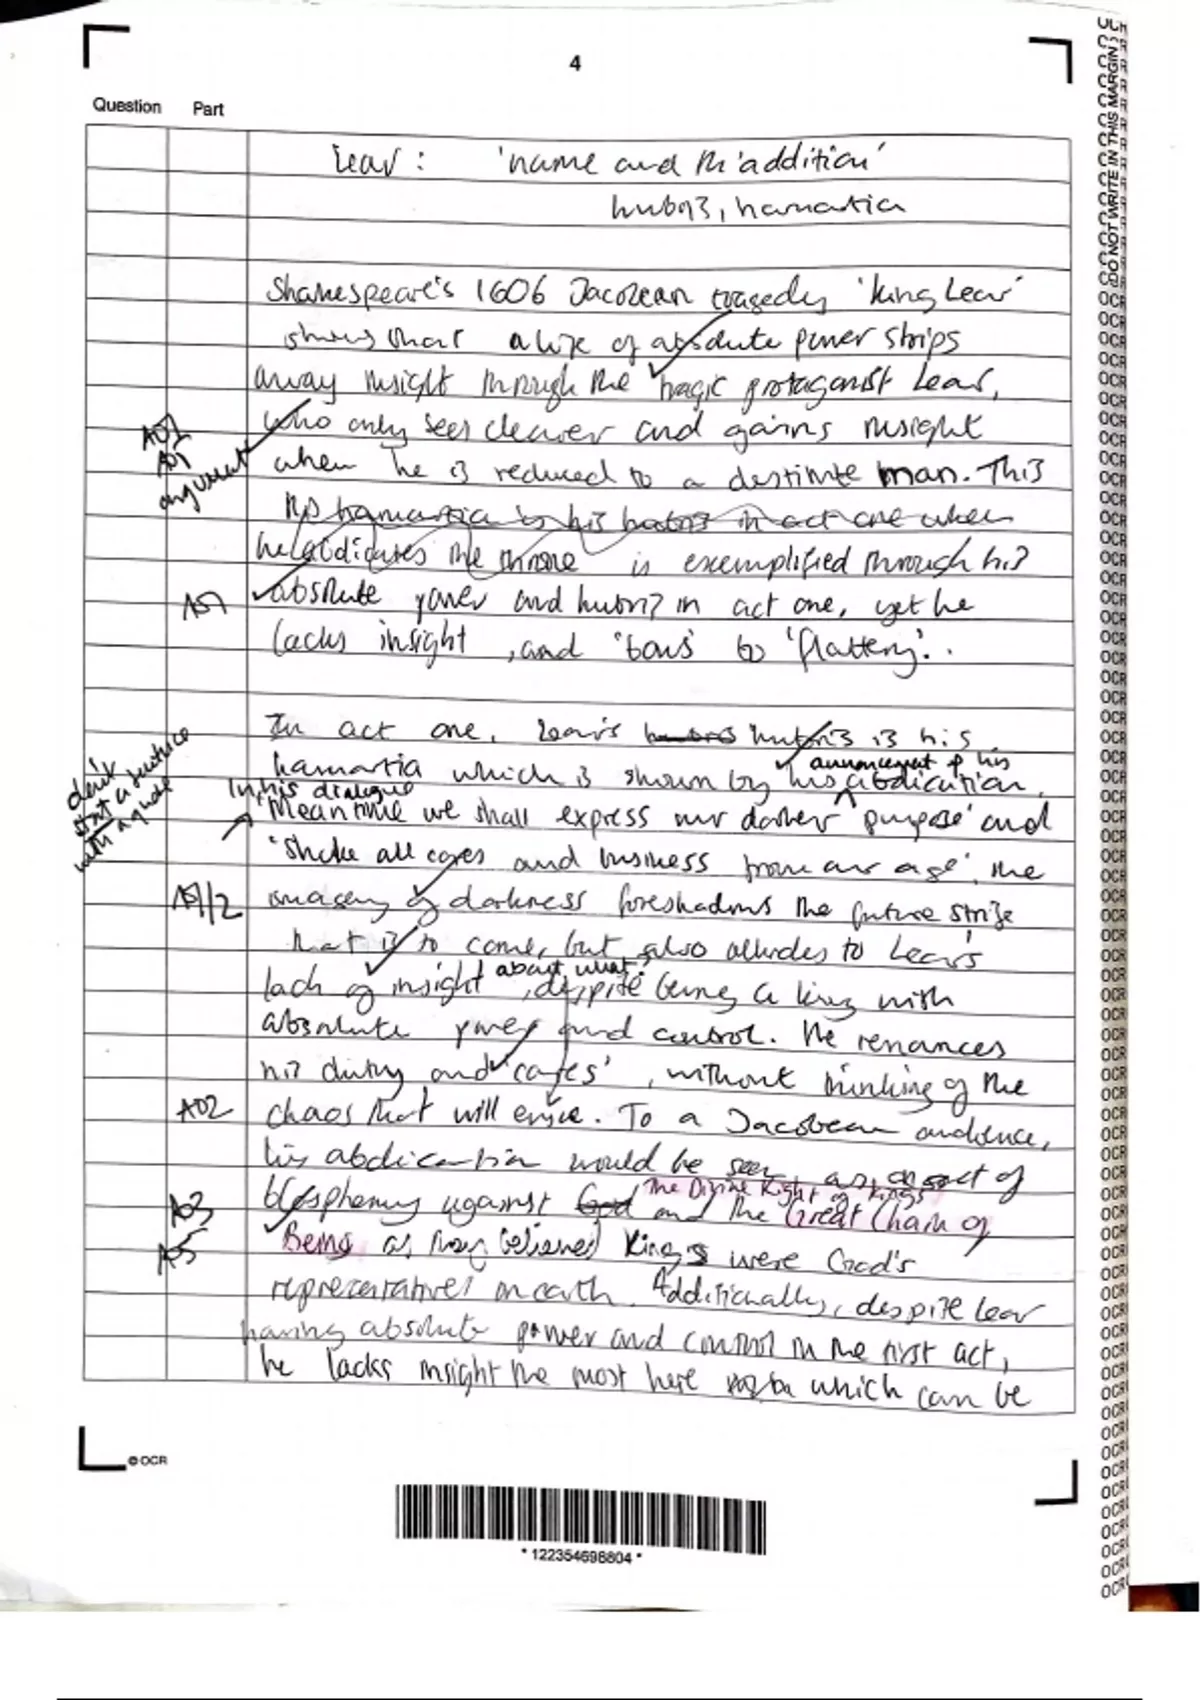 4
Question Part
Lear: 'name and th'addition'
hubris, hamartia
Shakespeare's 1606 Jacobean tragedy 'King Lear'
shows that a life of absolute power strips
away insight through the tragic protagonist Lear,
who only sees clearer and gains insight
AO2
AO1
argument
when he is reduced to a destitute man. This
his hamartia is his hubris in act one when
he abdicates the throne is exemplified through his
AO1
absolute power and hubris in act one, yet he
lacks insight, and 'bows' to 'flattery'.
In act one, Lear's hubris hubris is his
hamartia which is shown by his announcement of his abdication.
don't
start a sentence
with a quote
In his dialogue
'Meantime we shall express our darker purpose' and
'Shake all cares and business from our age', the
AO1/2
imagery of darkness foreshadows the future strife
that is to come, but also alludes to Lear's
lack of insight, about what? despite being a king with
absolute power and control. He renounces
his duty and 'cares', without thinking of the
AO2
chaos that will ensue. To a Jacobean audience,
his abdication would be seen as an act of
blasphemy against God The Divine Right of Kings and the Great Chain of
AO3
Being as many believed Kings were God's
AO5
representatives on earth. Additionally, despite Lear
having absolute power and control in the first act,
he lacks insight the most here which can be
© OCR
* 122354698804 *
DO NOT WRITE IN THIS MARGIN